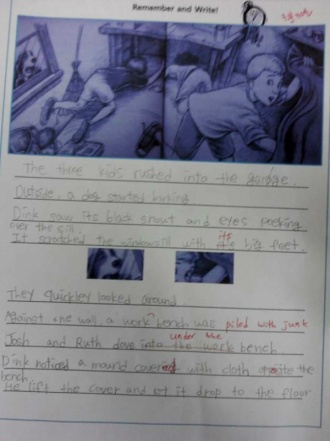 Remember and Write!
The three kids rushed into the garage.
Outside, a dog started barking
Dink saw its black snout and eyes peeking
over the sill.
its
It scratched the windowsill with big feet.
They quickley looked around
Against one wall a work bench was piled with junk
under the
Josh and Ruth dove into the work bench
Dink noticed a mound covered with cloth
bench
He lift the cover and let it drop to the floor